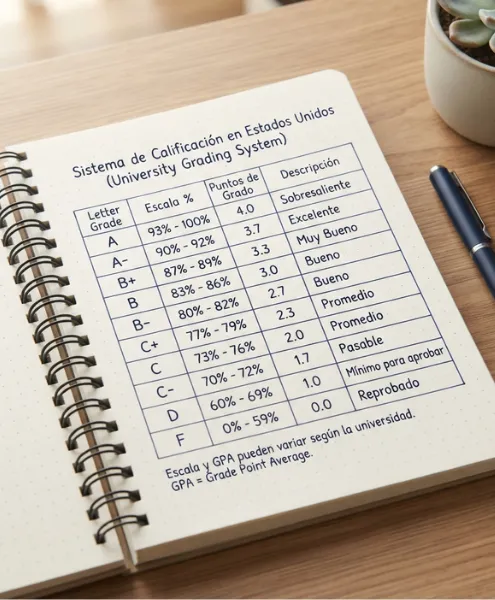 Sistema de Calificación en Estados Unidos
(University Grading System)
Letter Grade Escala % Puntos de Grado Descripción
A 93% - 100% 4.0 Sobresaliente
A- 90% - 92% 3.7 Excelente
B+ 87% - 89% 3.3 Muy Bueno
B 83% - 86% 3.0 Bueno
B- 80% - 82% 2.7 Bueno
C+ 77% - 79% 2.3 Promedio
C 73% - 76% 2.0 Promedio
C- 70% - 72% 1.7 Pasable
D 60% - 69% 1.0 Mínimo para aprobar
F 0% - 59% 0.0 Reprobado
Escala y GPA pueden variar según la universidad.
GPA = Grade Point Average.